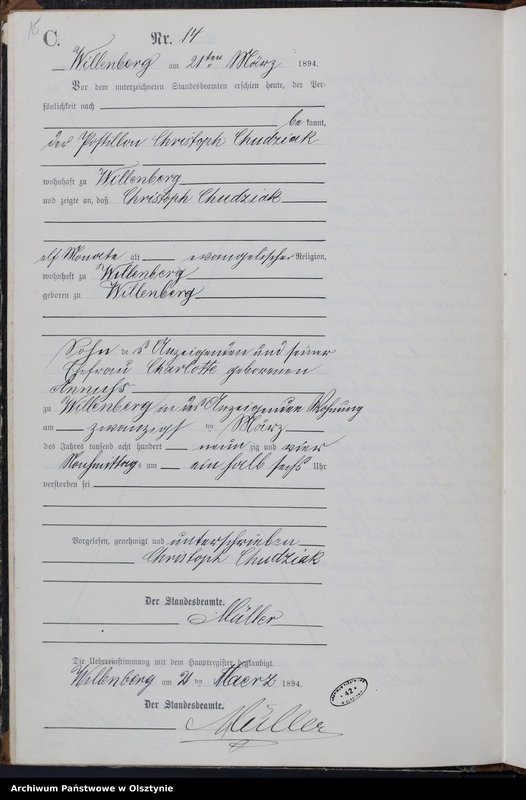 15
C.
Nr. 14
Willenberg am 21ten März 1894.
Vor dem unterzeichneten Standesbeamten erschien heute, der Per-
sönlichkeit nach
be kannt,
der Postillon Christoph Chudziak
wohnhaft zu Willenberg
und zeigte an, daß Christoph Chudziak
elf Monate alt evangelischer Religion,
wohnhaft zu Willenberg
geboren zu Willenberg
Sohn des Anzeigenden und seiner
Ehefrau Charlotte geborenen
zu Willenberg in des Anzeigenden Wohnung
am zwanzigsten März
des Jahres tausend acht hundert neunzig und vier
Nachmittags um ein halb sechs Uhr
verstorben sei
Vorgelesen, genehmigt und unterschrieben
Christoph Chudziak
Der Standesbeamte.
Müller
Die Uebereinstimmung mit dem Hauptregister beglaubigt.
Willenberg am 21ten Maerz 1894.
Der Standesbeamte.
Müller
42
Archiwum Państwowe w Olsztynie